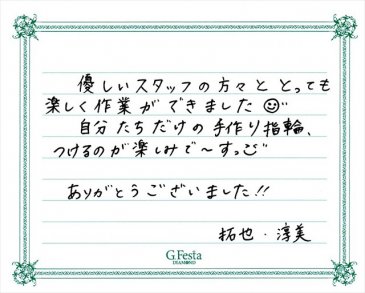 優しいスタッフの方々と とっても
楽しく作業ができました
自分たちだけの手作り指輪、
つけるのが楽しみで〜すっ
ありがとうございました!!
拓也・淳美
G.Festa
DIAMOND